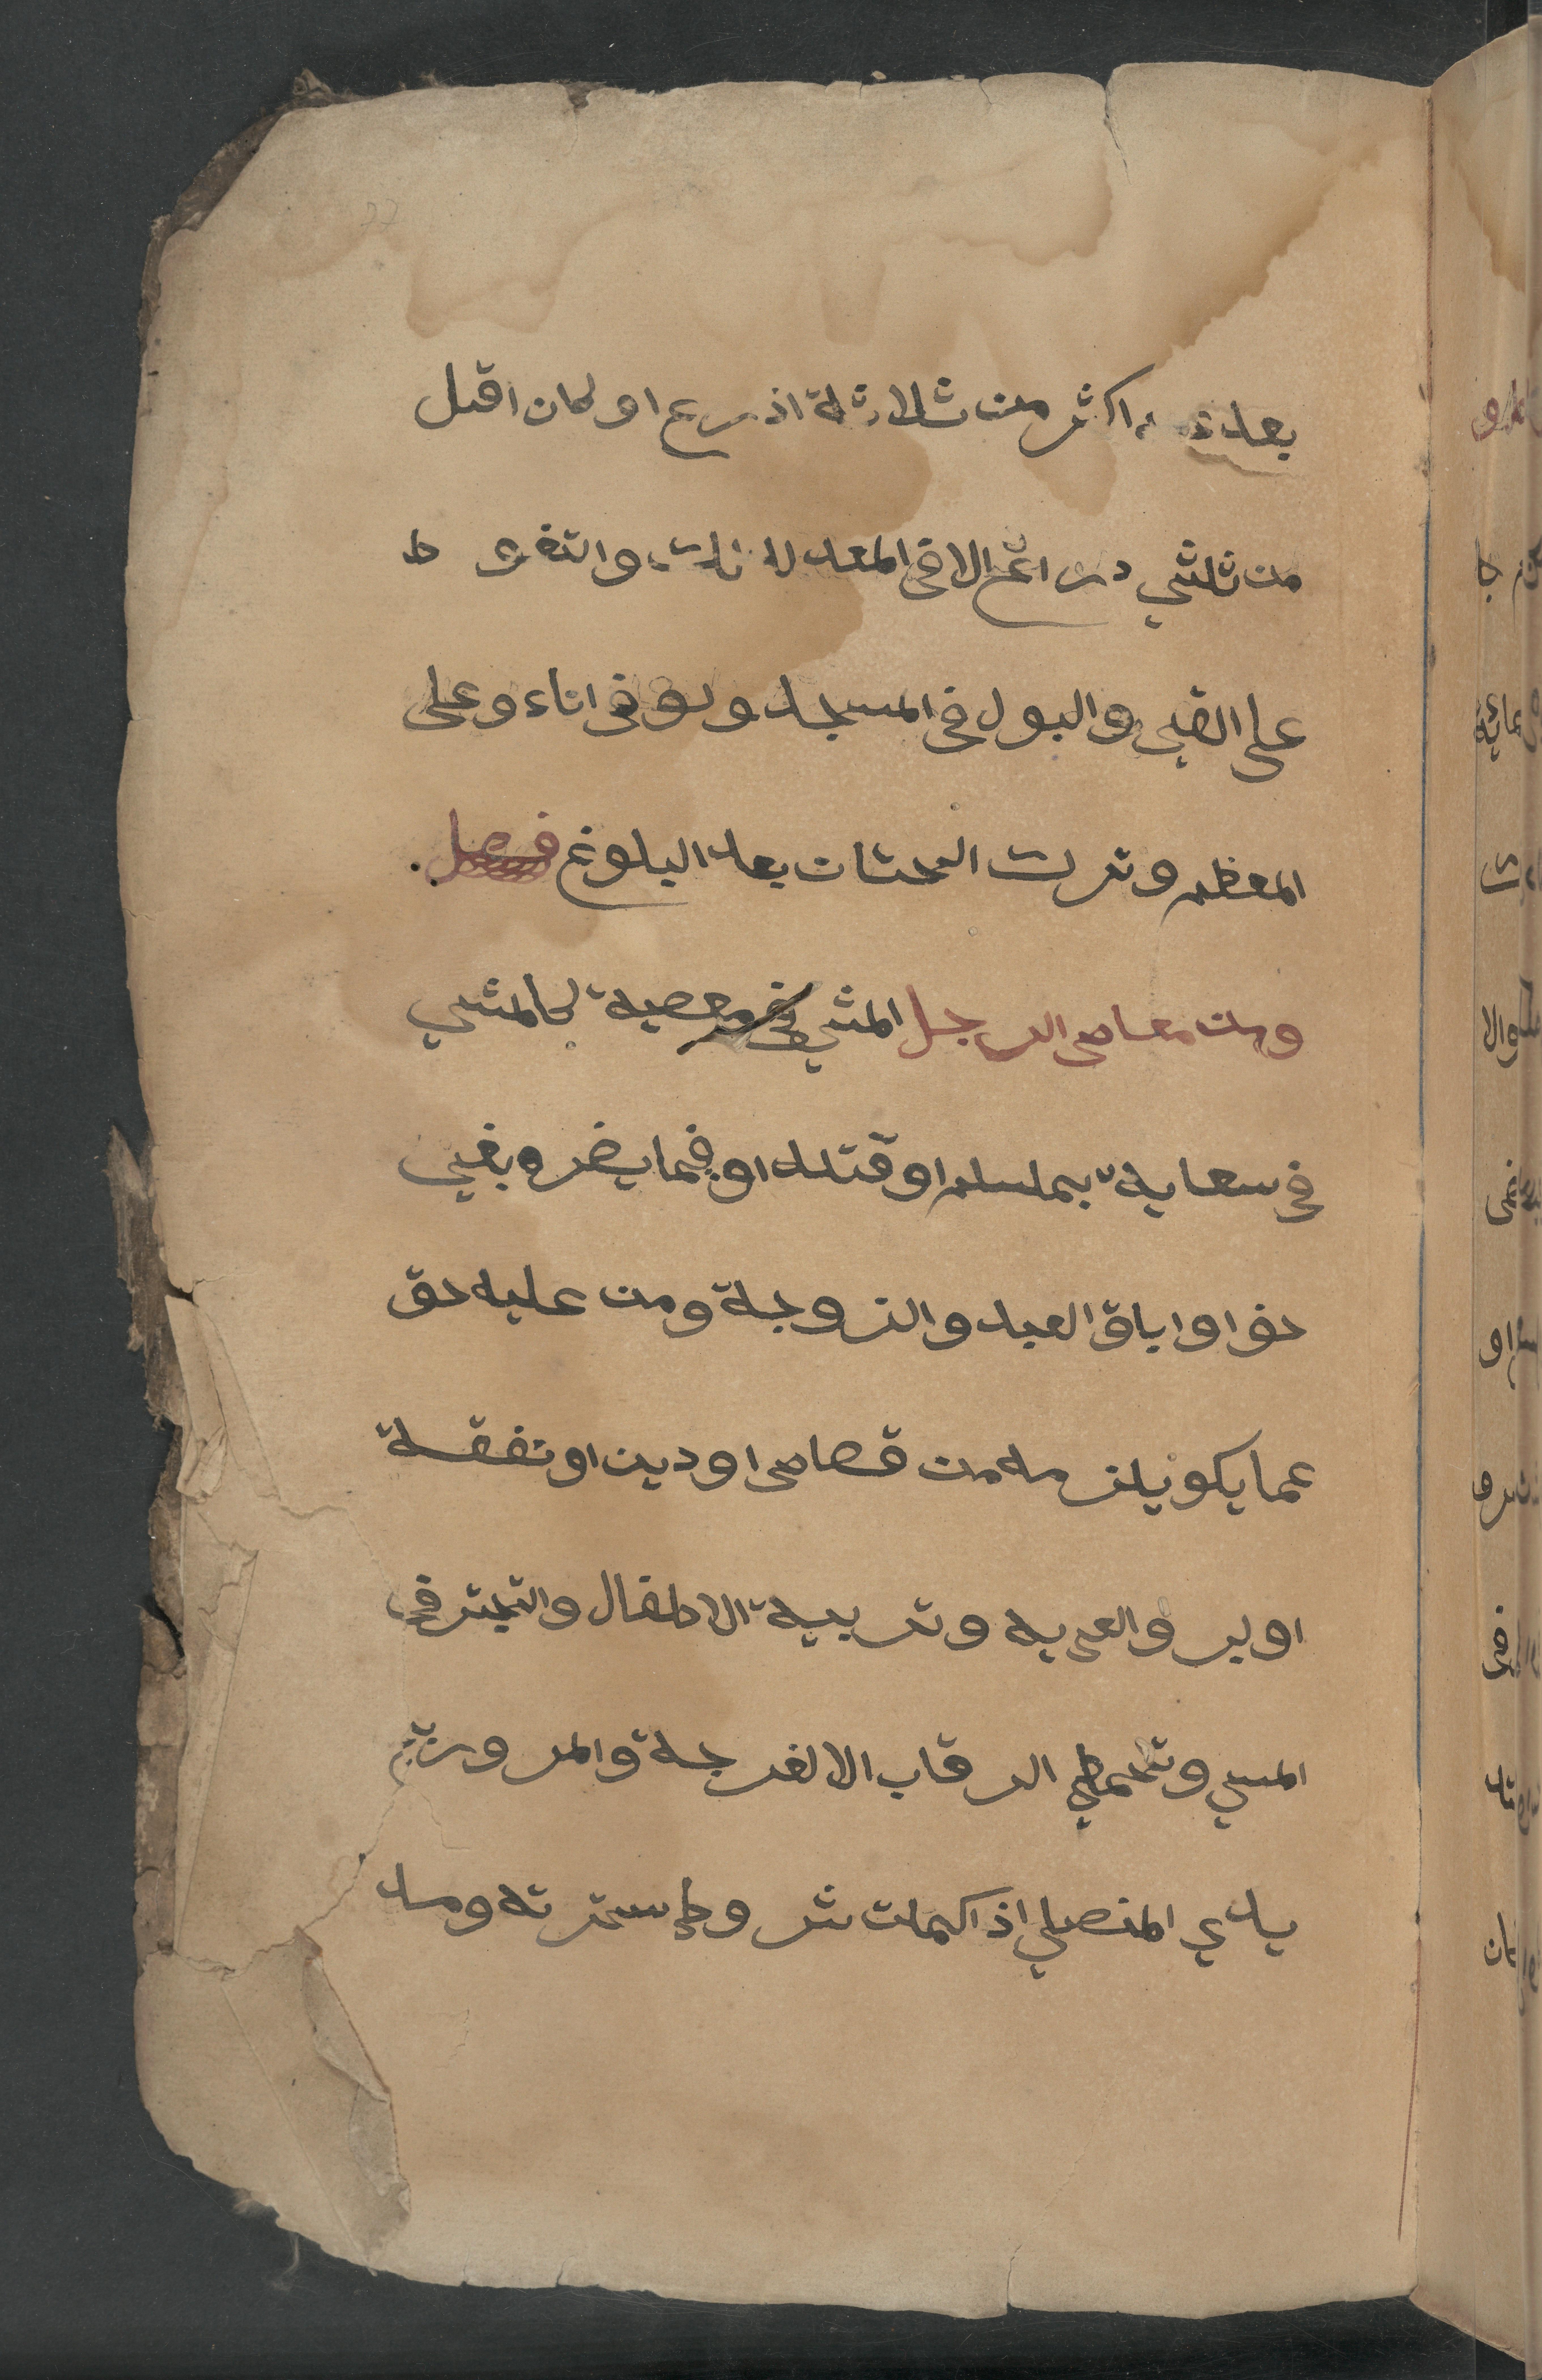 بعد عنه اكثر من ثلاثة اذرع او كان اقل
من ثلثي ذراع الا في المعد لذلك والتغوط
على القبر والبول في المسجد ولو في اناء وعلى
المعظم وترك الختان بعد البلوغ فصل
ومن معاصى الرجل المشي في معصية كالمشي
في سعاية بمسلم او قتله او فيما يضره بغير
حق او اباق العبد والزوجة ومن عليه حق
عما يلزمه من قصاص او دين او نفقة
او بر والديه وتربية الاطفال والتبختر في
المشي وتخطي الرقاب الا لفرجة والمرور بين
يدي المصلي اذا كملت شروط سترته ومد